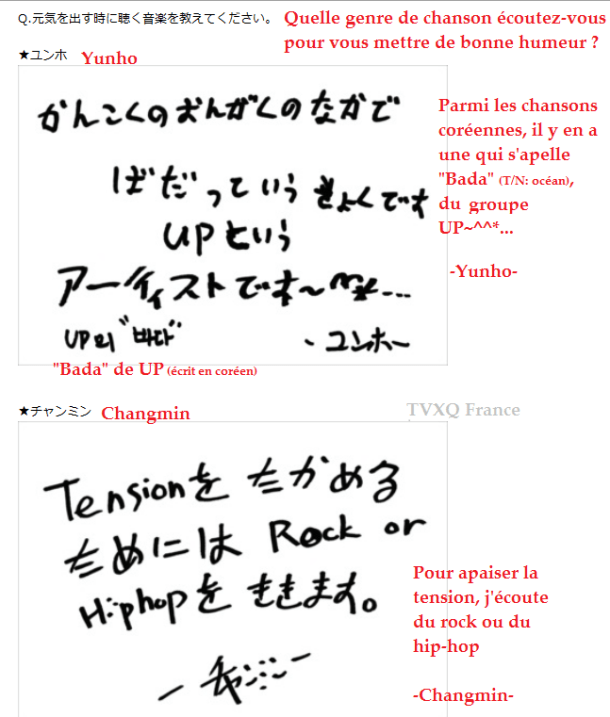 Q.元気を出す時に聴く音楽を教えてください。
Quelle genre de chanson écoutez-vous
pour vous mettre de bonne humeur ?
★ユンホ Yunho
かんこくのおんがくのなかで
ばだっていうきょくです
UPという
アーティストです〜^^*...
UP의 "바다"
-ユンホー
Parmi les chansons
coréennes, il y en a
une qui s'apelle
"Bada" (T/N: océan),
du groupe
UP~^^*...
-Yunho-
"Bada" de UP (écrit en coréen)
★チャンミン Changmin
TVXQ France
Tensionをたかめる
ためには Rock or
Hiphopをききます。
-チャンミン-
Pour apaiser la
tension, j'écoute
du rock ou du
hip-hop
-Changmin-